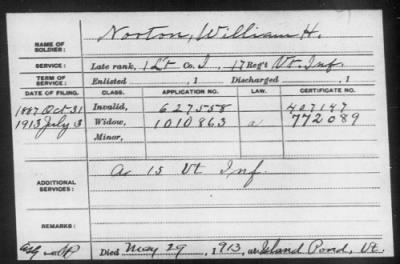 NAME OF SOLDIER: Norton, William H.
SERVICE: Late rank, 1 Lt Co. I, 17 Reg't Vt. Inf.
TERM OF SERVICE: Enlisted , 1 Discharged , 1
DATE OF FILING. CLASS. APPLICATION NO. LAW. CERTIFICATE NO.
1887 Oct 31 Invalid, 627558 407147
1913 July 3 Widow, 1010863 a 772089
Minor,
ADDITIONAL SERVICES: A 15 Vt Inf
REMARKS:
Died May 29, 1913, at Island Pond, Vt.